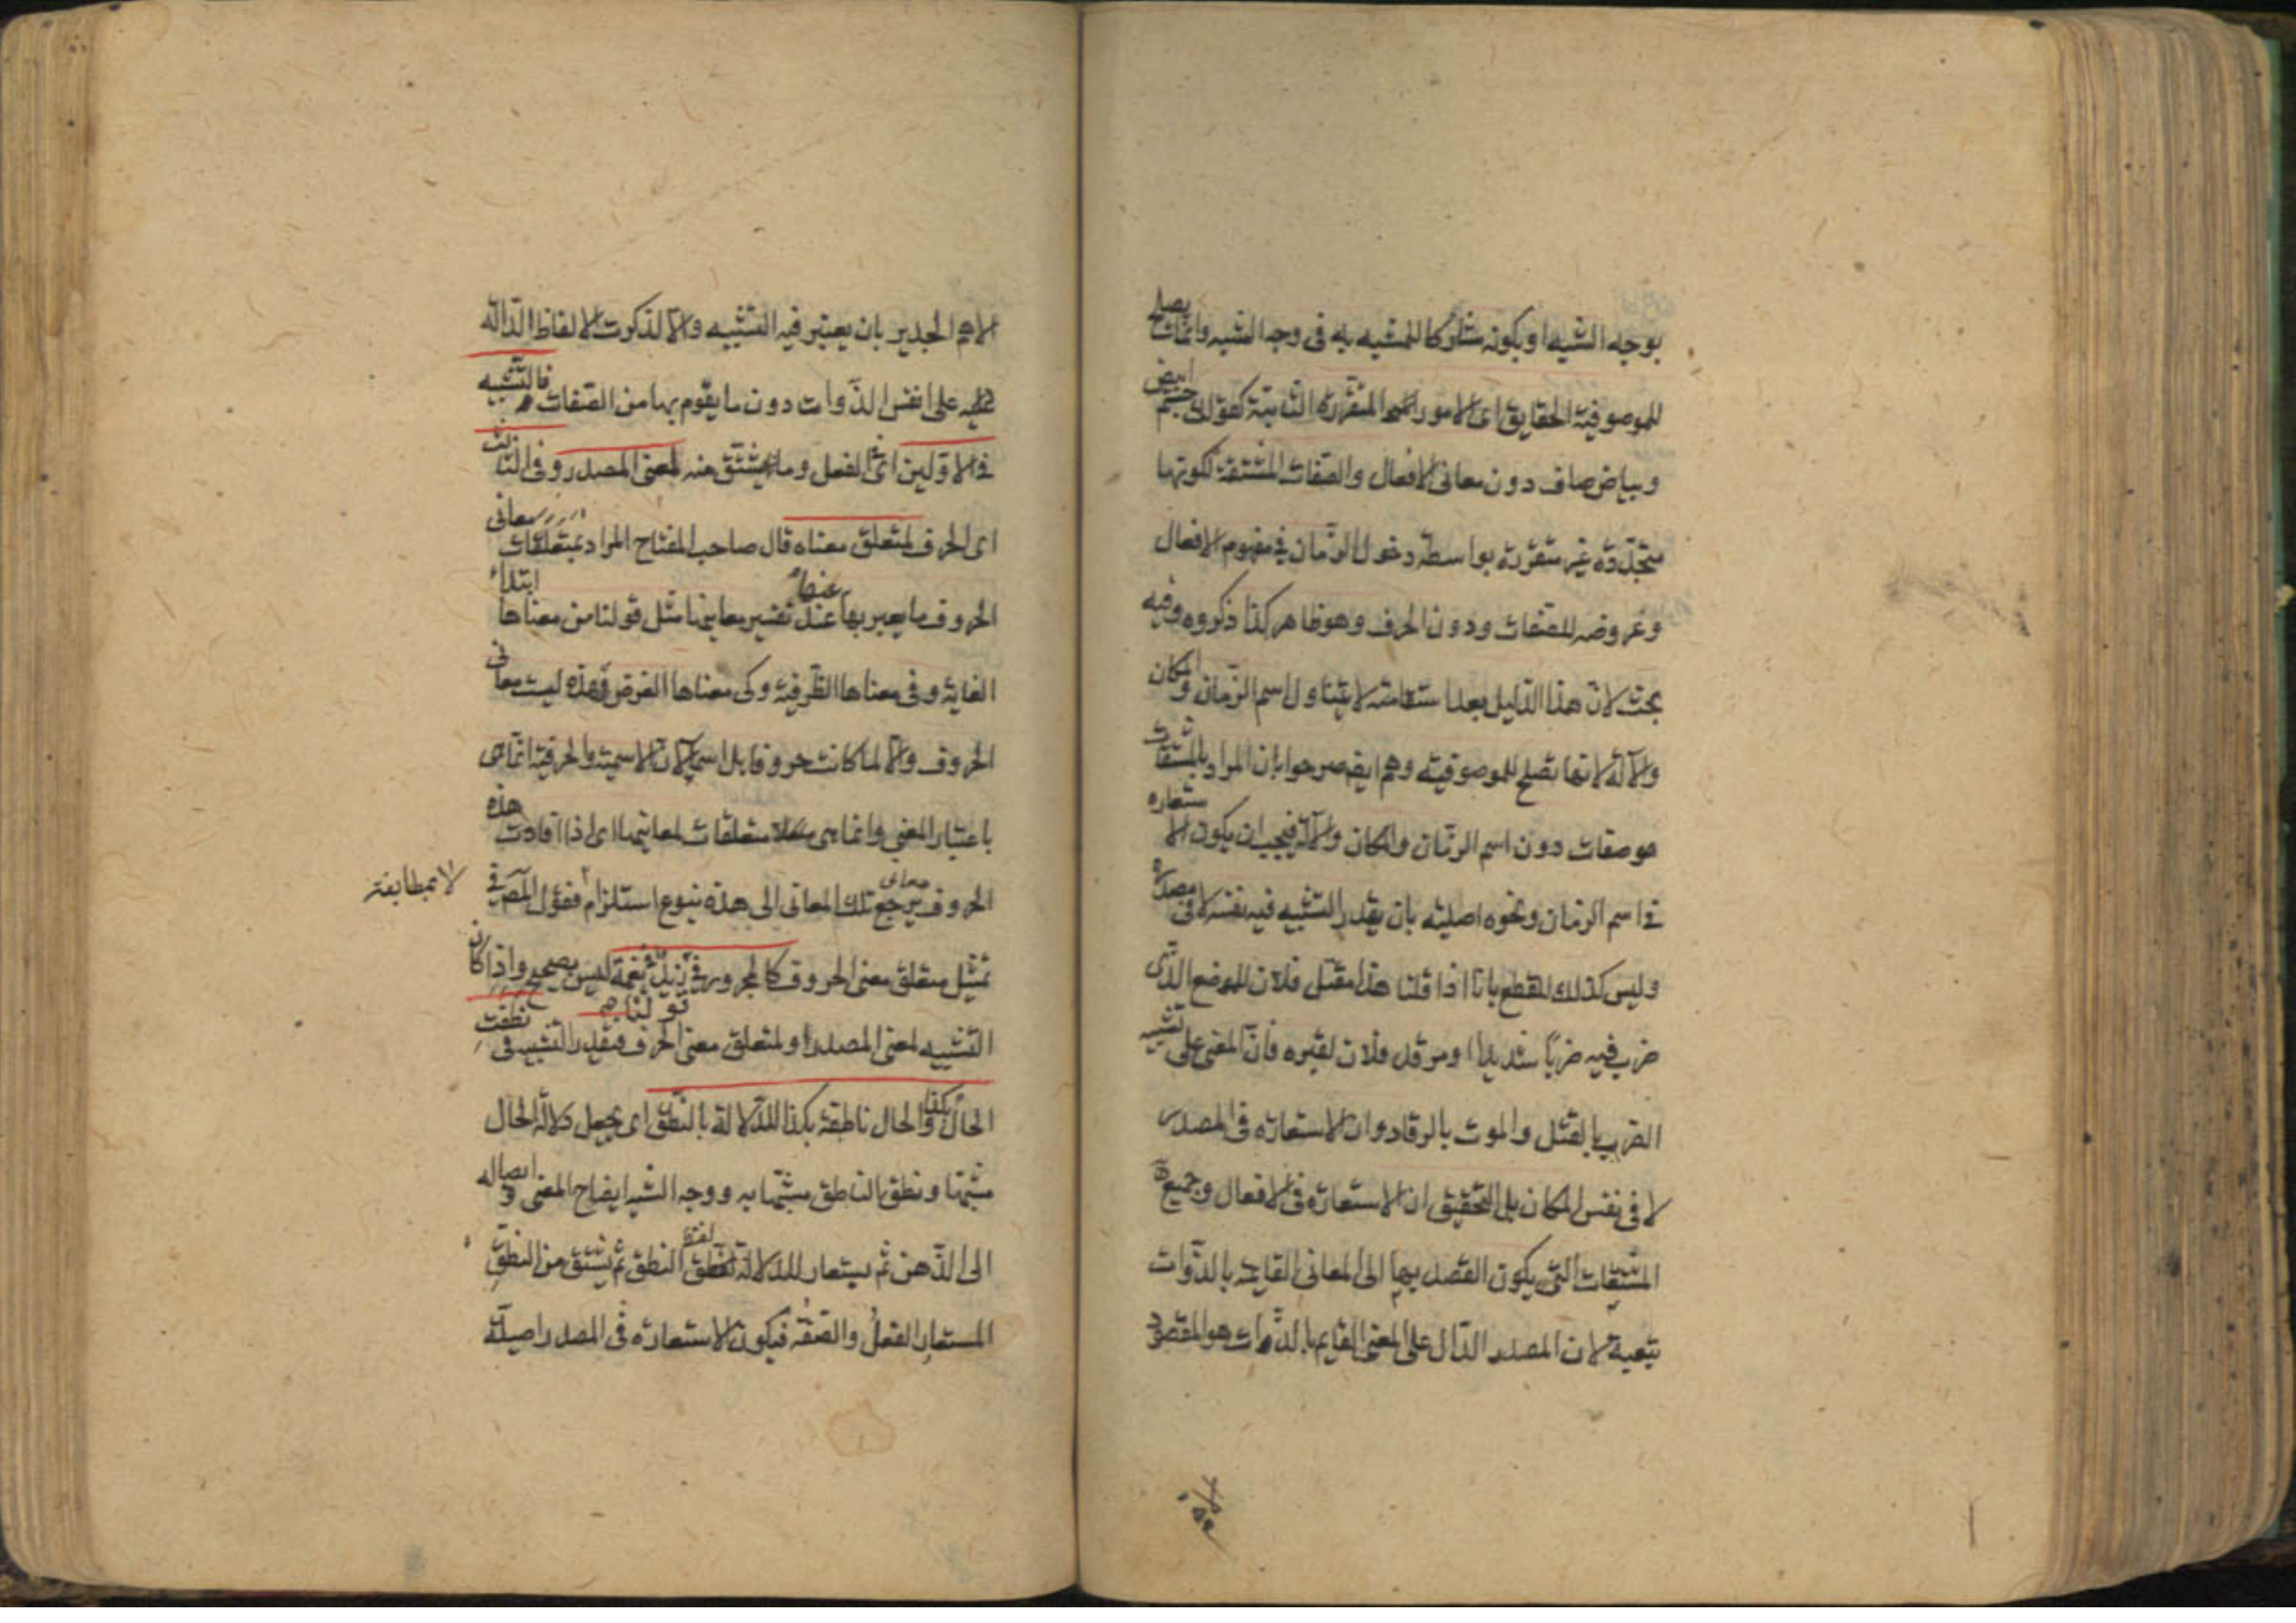 بوجه الشبه او بكونه مشاركا للمشبه به فى وجه الشبه وانما يصلح
للموصوفية الحقايق اى الامور المتقررة الثابتة كقولك جسم ابيض
وبياض صاف دون معانى الافعال والصفات المشتقة لكونها
متجددة غير متقررة بواسطة دخول الزمان فى مفهوم الافعال
وعروضه للصفات ودون الحرف وهو ظاهر كذا ذكروه وفيه
بحث لان هذا الدليل بعد استقامته لا يتناول اسم الزمان والمكان
والآلة لانها تصلح للموصوفية وهم ايضا صرحوا بان المراد بالمشتقات
هو صفات دون اسم الزمان والمكان والآلة فيجب ان يكون الاستعارة
فى اسم الزمان ونحوه اصلية بان يقدر التشبيه فيه نفسه لا فى مصدره
وليس كذلك للقطع بانا اذا قلنا هذا مقتل فلان للموضع الذى
ضرب فيه ضربا شديدا او مرقد فلان لقبره فان المعنى على تشبيه
الضرب بالقتل والموت بالرقاد وان الاستعارة فى المصدر
لا فى نفس المكان بل التحقيق ان الاستعارة فى الافعال وجميع
المشتقات التى يكون القصد بها الى المعانى القايمة بالذوات
تبعية لان المصدر الدال على المعنى القايم بالذوات هو المقصود
الاهم الجدير بان يعتبر فيه التشبيه والا لذكرت الالفاظ الدالة
على انفس الذوات دون ما يقوم بها من الصفات فالتشبيه
فى الاولين اى الفعل وما يشتق منه لمعنى المصدر وفى الثالث
اى الحرف لمتعلق معناه قال صاحب المفتاح المراد بمتعلقات معانى
الحروف ما يعبر بها عنها عند تفسير معانيها مثل قولنا من معناها ابتداء
الغاية وفى معناها الظرفية وكى معناها الغرض فهذه ليست معانى
الحروف والا لما كانت حروفا بل اسماء لان الاسمية والحرفية انما هى
باعتبار المعنى وانما هى متعلقات لمعانيها اى اذا افادت هذه
الحروف معانى يرجع تلك المعانى الى هذه بنوع استلزام فقول المصر فى
لا بمطابقة
تمثيل متعلق معنى الحروف كالمجرور فى زيد فى نعمة ليس بصحيح واذا كان
التشبيه لمعنى المصدر او لمتعلق معنى الحرف فيقدر التشبيه فى قولنا نطقت
الحال والحال ناطقة بكذا للدلالة بالنطق اى يجعل دلالة الحال
مشبها ونطق الناطق مشبها به ووجه الشبه ايضاح المعنى وايصاله
الى الذهن ثم يستعار للدلالة لفظ النطق ثم يشتق من النطق
المستعار الفعل والصفة فيكون الاستعارة فى المصدر اصلية